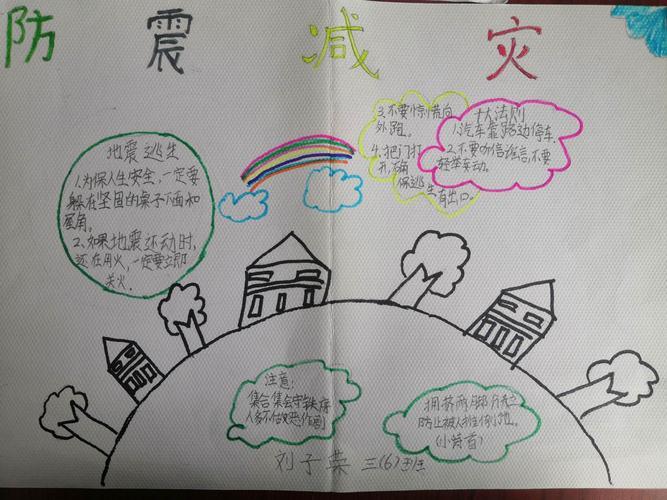 防震减灾
地震逃生
1.为保人生安全,一定要
躲在坚固的桌子下面和
屋角。
2、如果地震还动时,
还在用火,一定要立即
关火.
3.不要惊慌向
外跑。
4.把门打
开,确
保逃生有出口。
十大法则
1.汽车靠路边停车.
2.不要听信谣言,不要
轻举妄动.
注意:
集合集会守秩序
人多不
拥挤两脚
防止被人推倒地。
(小常
刘子荣 三(6)班